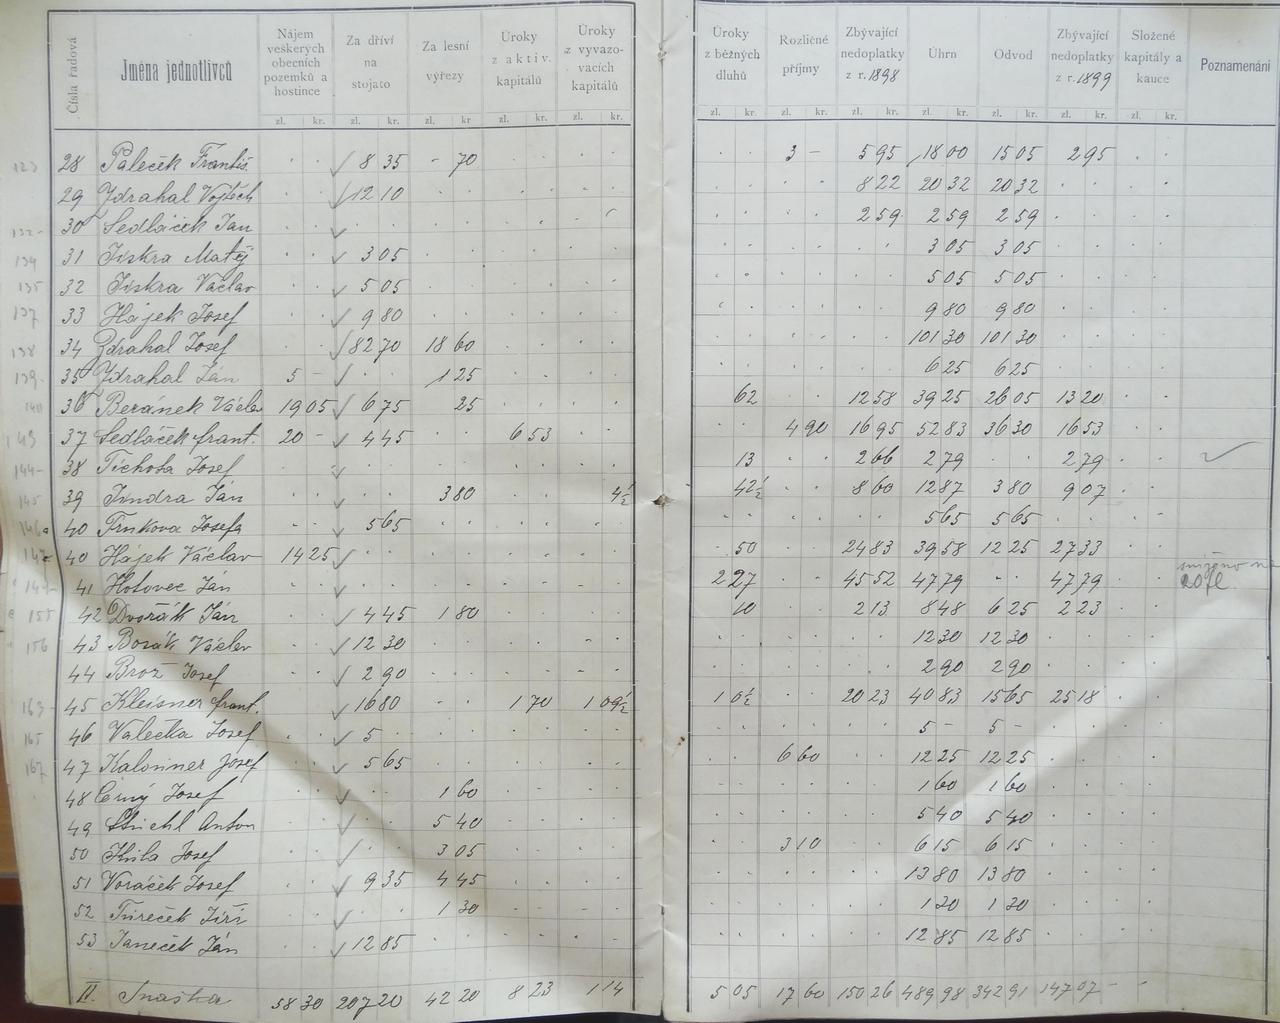 Čísla řadová | Jména jednotlivců | Nájem veškerých obecních pozemků a hostince | Za dříví na stojato | Za lesní výřezy | Úroky z aktiv. kapitálů | Úroky z vyvazovacích kapitálů | Úroky z běžných dluhů | Rozličné příjmy | Zbývající nedoplatky z r. 1898 | Úhrn | Odvod | Zbývající nedoplatky z r. 1899 | Složené kapitály a kauce | Poznamenání
zl. kr. zl. kr. zl. kr. zl. kr. zl. kr. zl. kr. zl. kr. zl. kr. zl. kr. zl. kr. zl. kr. zl. kr.
123 28 Paleček Františ. 8 35 - 70 3 - 5 95 18 00 15 05 2 95
29 Zdrahal Vojtěch 12 10 8 22 20 32 20 32
132 30 Sedláček Jan 2 59 2 59 2 59
134 31 Jiskra Matěj 3 05 3 05 3 05
135 32 Jiskra Václav 5 05 5 05 5 05
137 33 Hájek Josef 9 80 9 80 9 80
138 34 Zdrahal Josef 82 70 18 60 101 30 101 30
139 35 Zdrahal Ján 5 - 1 25 6 25 6 25
36 Beránek Václav 19 05 6 75 25 62 12 58 39 25 26 05 13 20
143 37 Sedláček frant. 20 - 4 45 6 53 4 90 16 95 52 83 36 30 16 53
144 38 Tichota Josef 13 2 66 2 79 2 79
145 39 Jindra Ján 3 80 4½ 42½ 8 60 12 87 3 80 9 07
146a 40 Trnkova Josefa 5 65 5 65 5 65
40 Hájek Václav 14 25 50 24 83 39 58 12 25 27 33
41 Hotovec Ján 2 27 45 52 47 79 47 79 20 zl.
155 42 Dvořák Ján 4 45 1 80 10 2 13 8 48 6 25 2 23
156 43 Bosák Václav 12 30 12 30 12 30
44 Brož Josef 2 90 2 90 2 90
163 45 Kleisner frant. 16 80 1 70 1 09½ 1 0½ 20 23 40 83 15 65 25 18
165 46 Valečka Josef 5 - 5 - 5 -
167 47 Kalonner Josef 5 65 6 60 12 25 12 25
48 Černý Josef 1 60 1 60 1 60
49 Anton 5 40 5 40 5 40
50 Josef 3 05 3 10 6 15 6 15
51 Voráček Josef 9 35 4 45 13 80 13 80
52 Tůreček Jiří 1 30 1 30 1 30
53 Janeček Ján 12 85 12 85 12 85
IV. Snaška 58 30 207 20 42 20 8 23 1 14 5 05 17 60 150 26 489 98 342 91 147 07 - -